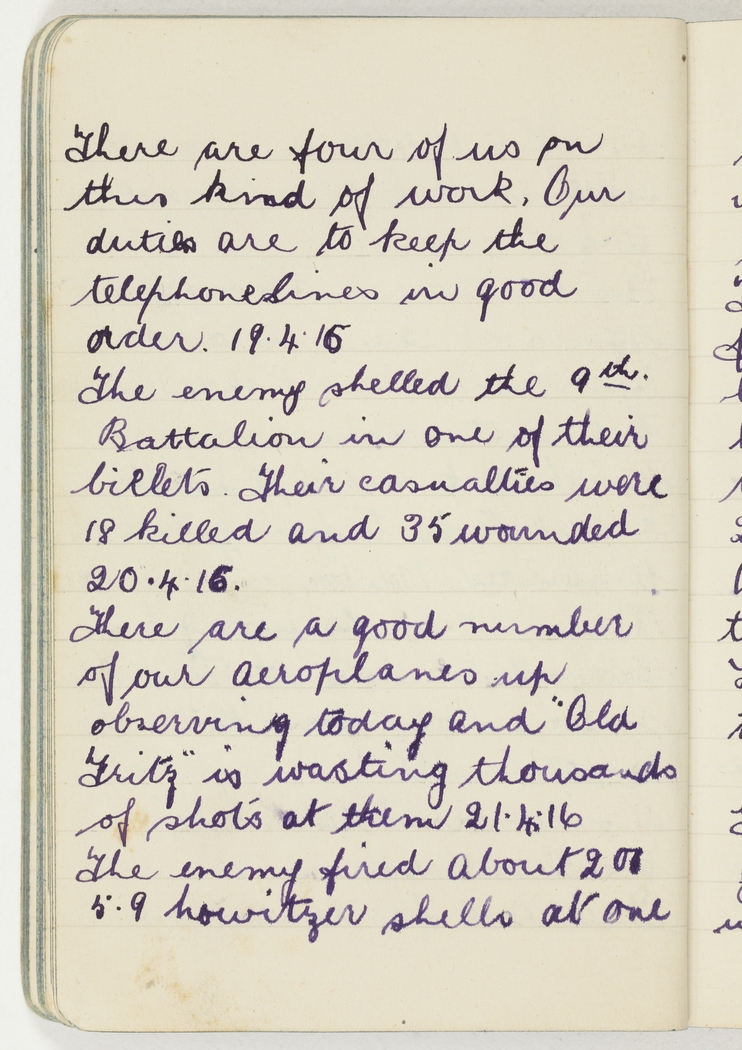 There are four of us on
this kind of work. Our
duties are to keep the
telephone lines in good
order. 19.4.16
The enemy shelled the 9th.
Battalion in one of their
billets. Their casualties were
18 killed and 35 wounded
20.4.16.
There are a good number
of our aeroplanes up
observing today and "Old
Fritz" is wasting thousands
of shots at them 21.4.16
The enemy fired about
5.9 howitzer shells at one